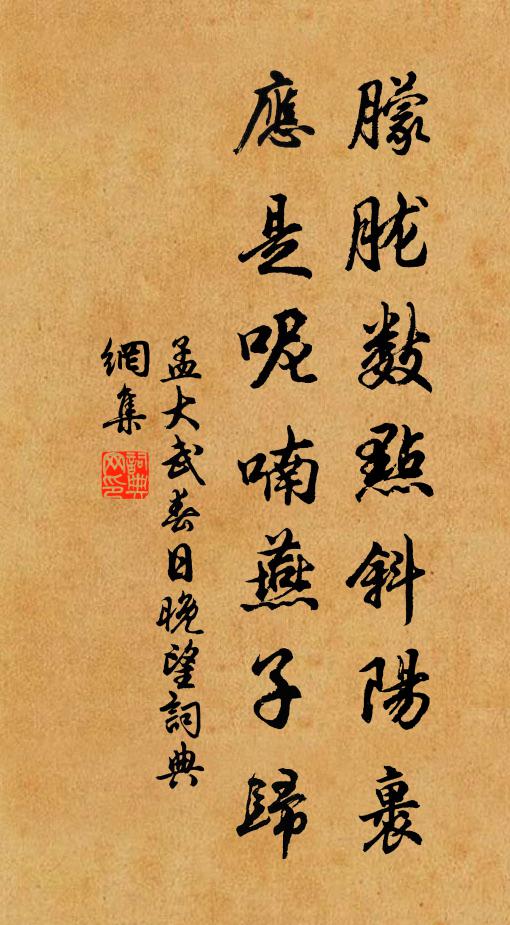 朦朧數點斜陽裏
應是呢喃燕子歸
孟大武春日晚望詞典
網集
詞典網印